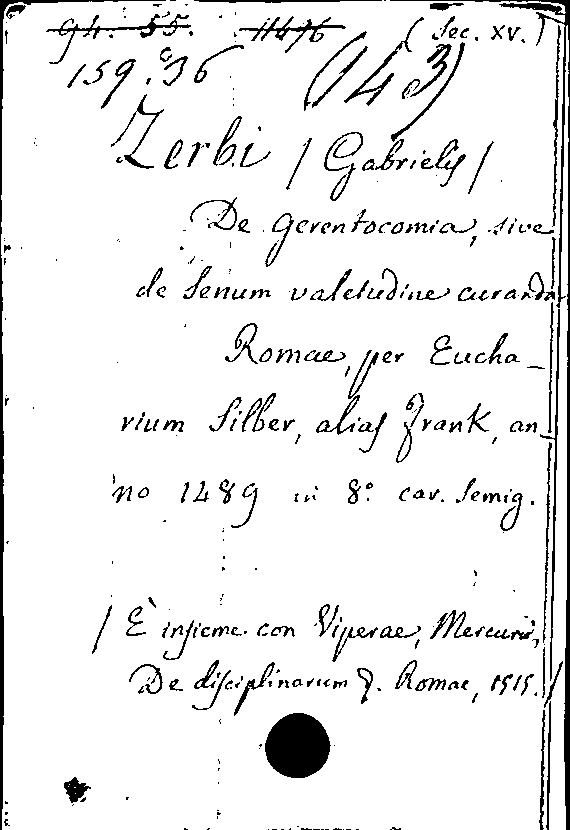 94. 55. 11496 (Sec. XV.)
159. c. 36 (143)
Zerbi / Gabrielis /
De Gerentocomia, sive
de Senum valetudine curanda
Romae, per Eucha_
rium Silber, alias Frank, an_
no 1489 in 8.° car. Semig.
/ È insieme con Viperae, Mercurii,
De disciplinarum &. Romae, 1515. /